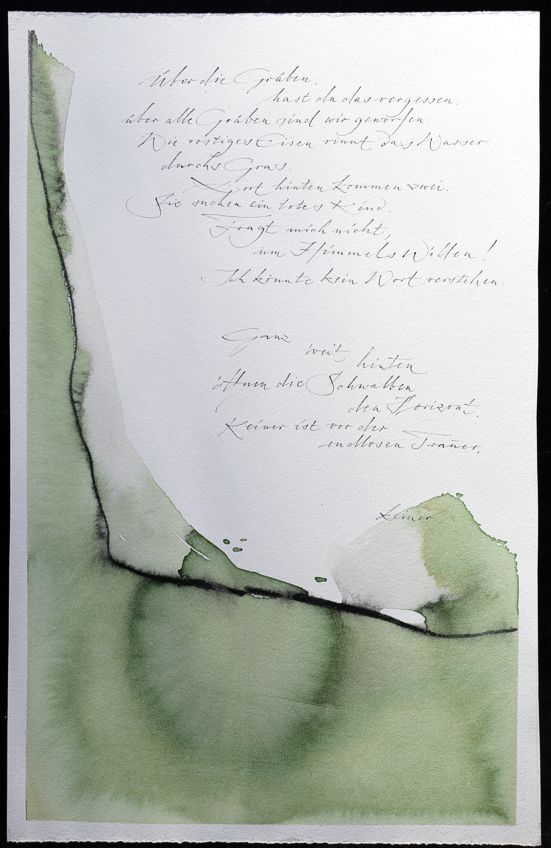 Über die Gräben,
hast du das vergessen,
über alle Gräben sind wir geworfen
Wie rostiges Eisen rinnt das Wasser
durchs Gras.
Dort hinten kommen zwei.
Sie suchen ein totes Kind.
Fragt mich nicht,
um Himmels Willen!
Ich könnte kein Wort verstehen.
Ganz weit hinten
öffnen die Schwalben
den Horizont.
Keiner ist vor der
endlosen Trauer,
keiner